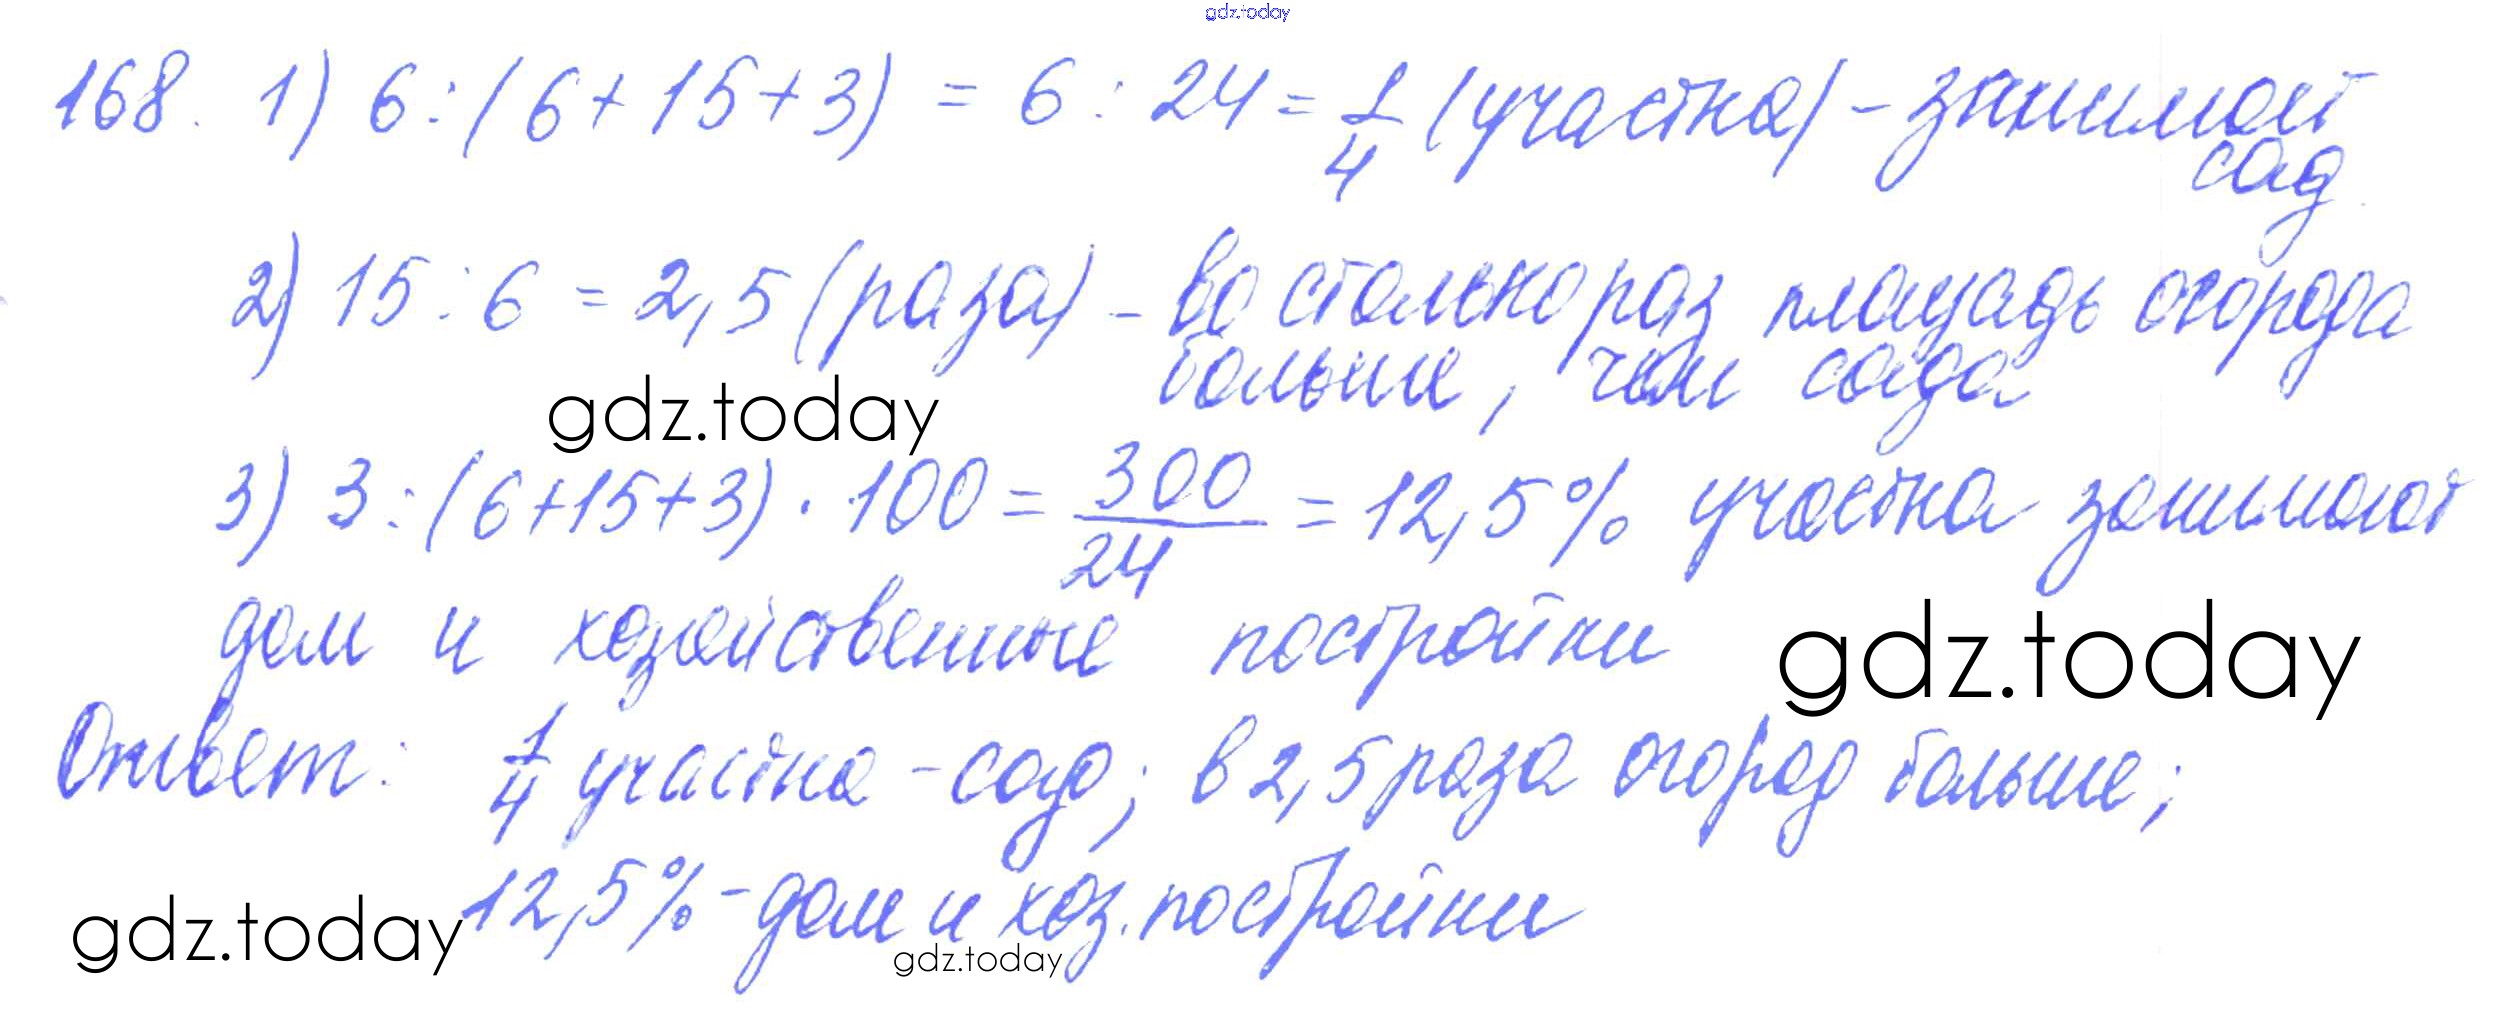 gdz.today
168. 1) 6:(6+15+3) = 6 : 24 = 1/4 (участка) - занимает
сад.
2) 15 : 6 = 2,5 (раза) - во столько раз площадь огорода
больше, чем сада
gdz.today
3) 3:(6+15+3)·100 = 300/24 = 12,5% участка занимают
дом и хозяйственные постройки
gdz.today
Ответ: 1/4 участка - сад; в 2,5 раза огород больше;
12,5% - дом и хоз. постройки
gdz.today
gdz.today